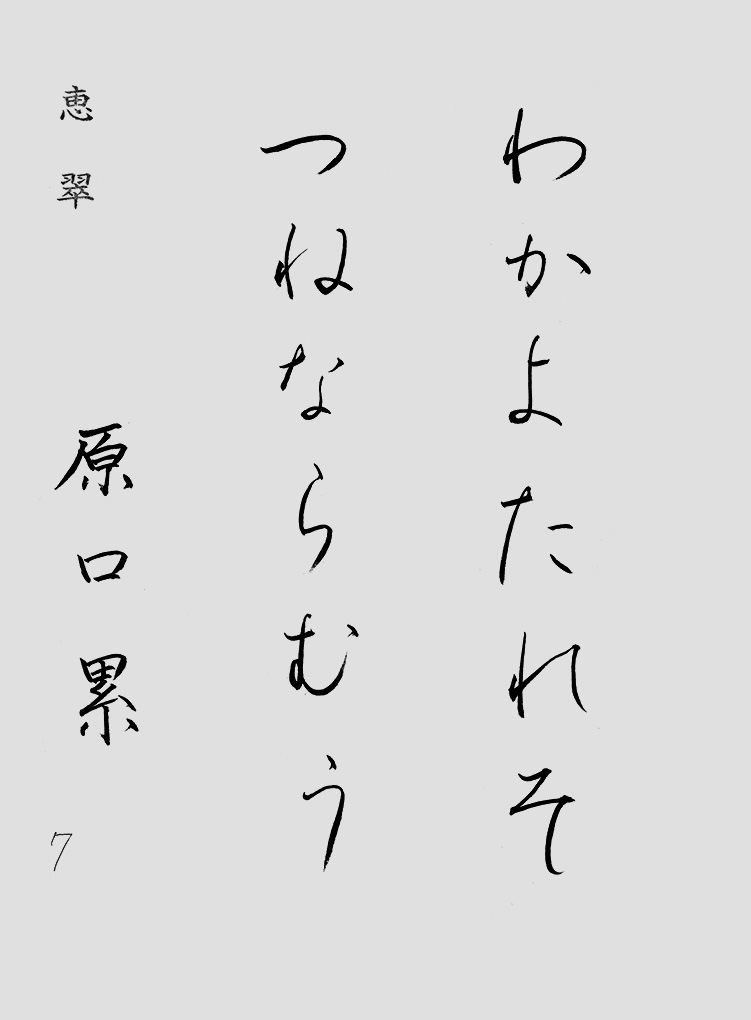 わかよたれそ
つねならむう
恵翠
原口累
7